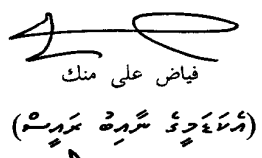 فياض على منك
(އެކަޑަމީގެ ނާއިބު ރައީސް)